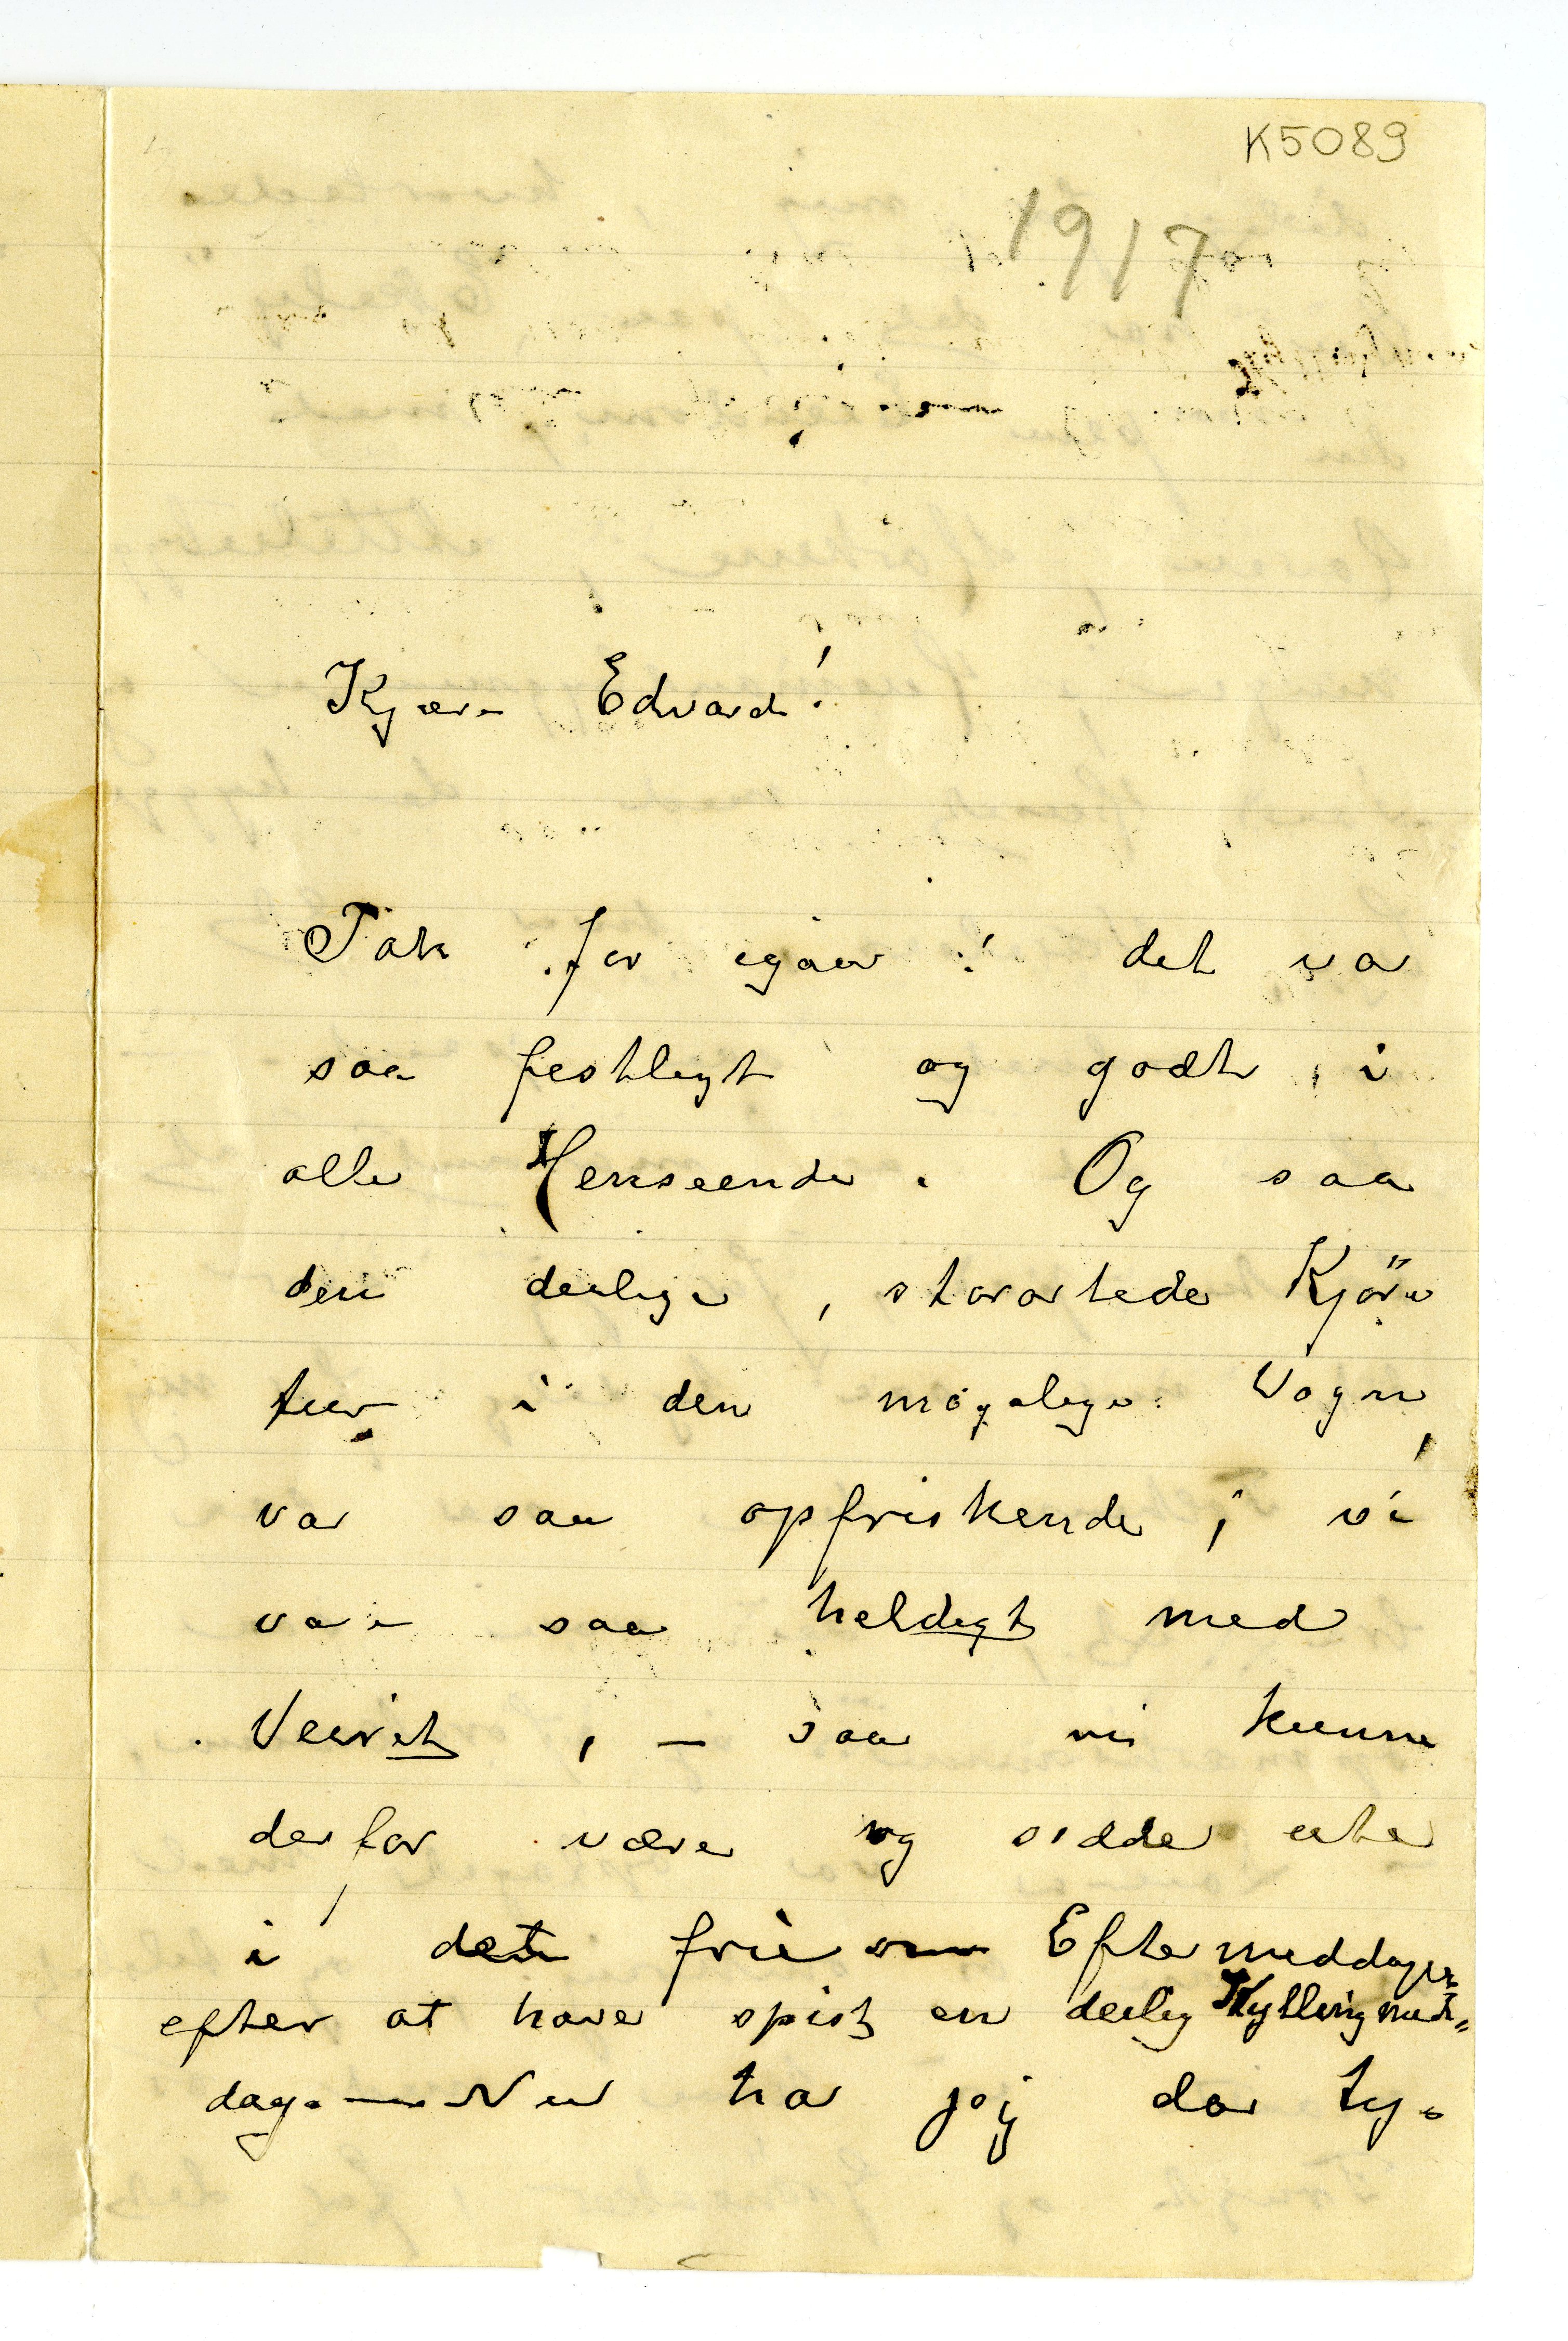 K5089
1917
Kjære Edvard!
Tak for igaar! det var
saa festligt og godt, i
alle Henseender. Og saa
den deilige, storartede Kjøre
tur i den magelige Vogn,
var saa opfriskende; vi
var saa heldigt med
Veiret, – saa vi kunne
derfor være og sidde ute
i det frie om Eftermeddagen
efter at have spist en deilig Kyllingmed-
dag. – Nu har jeg da ty-